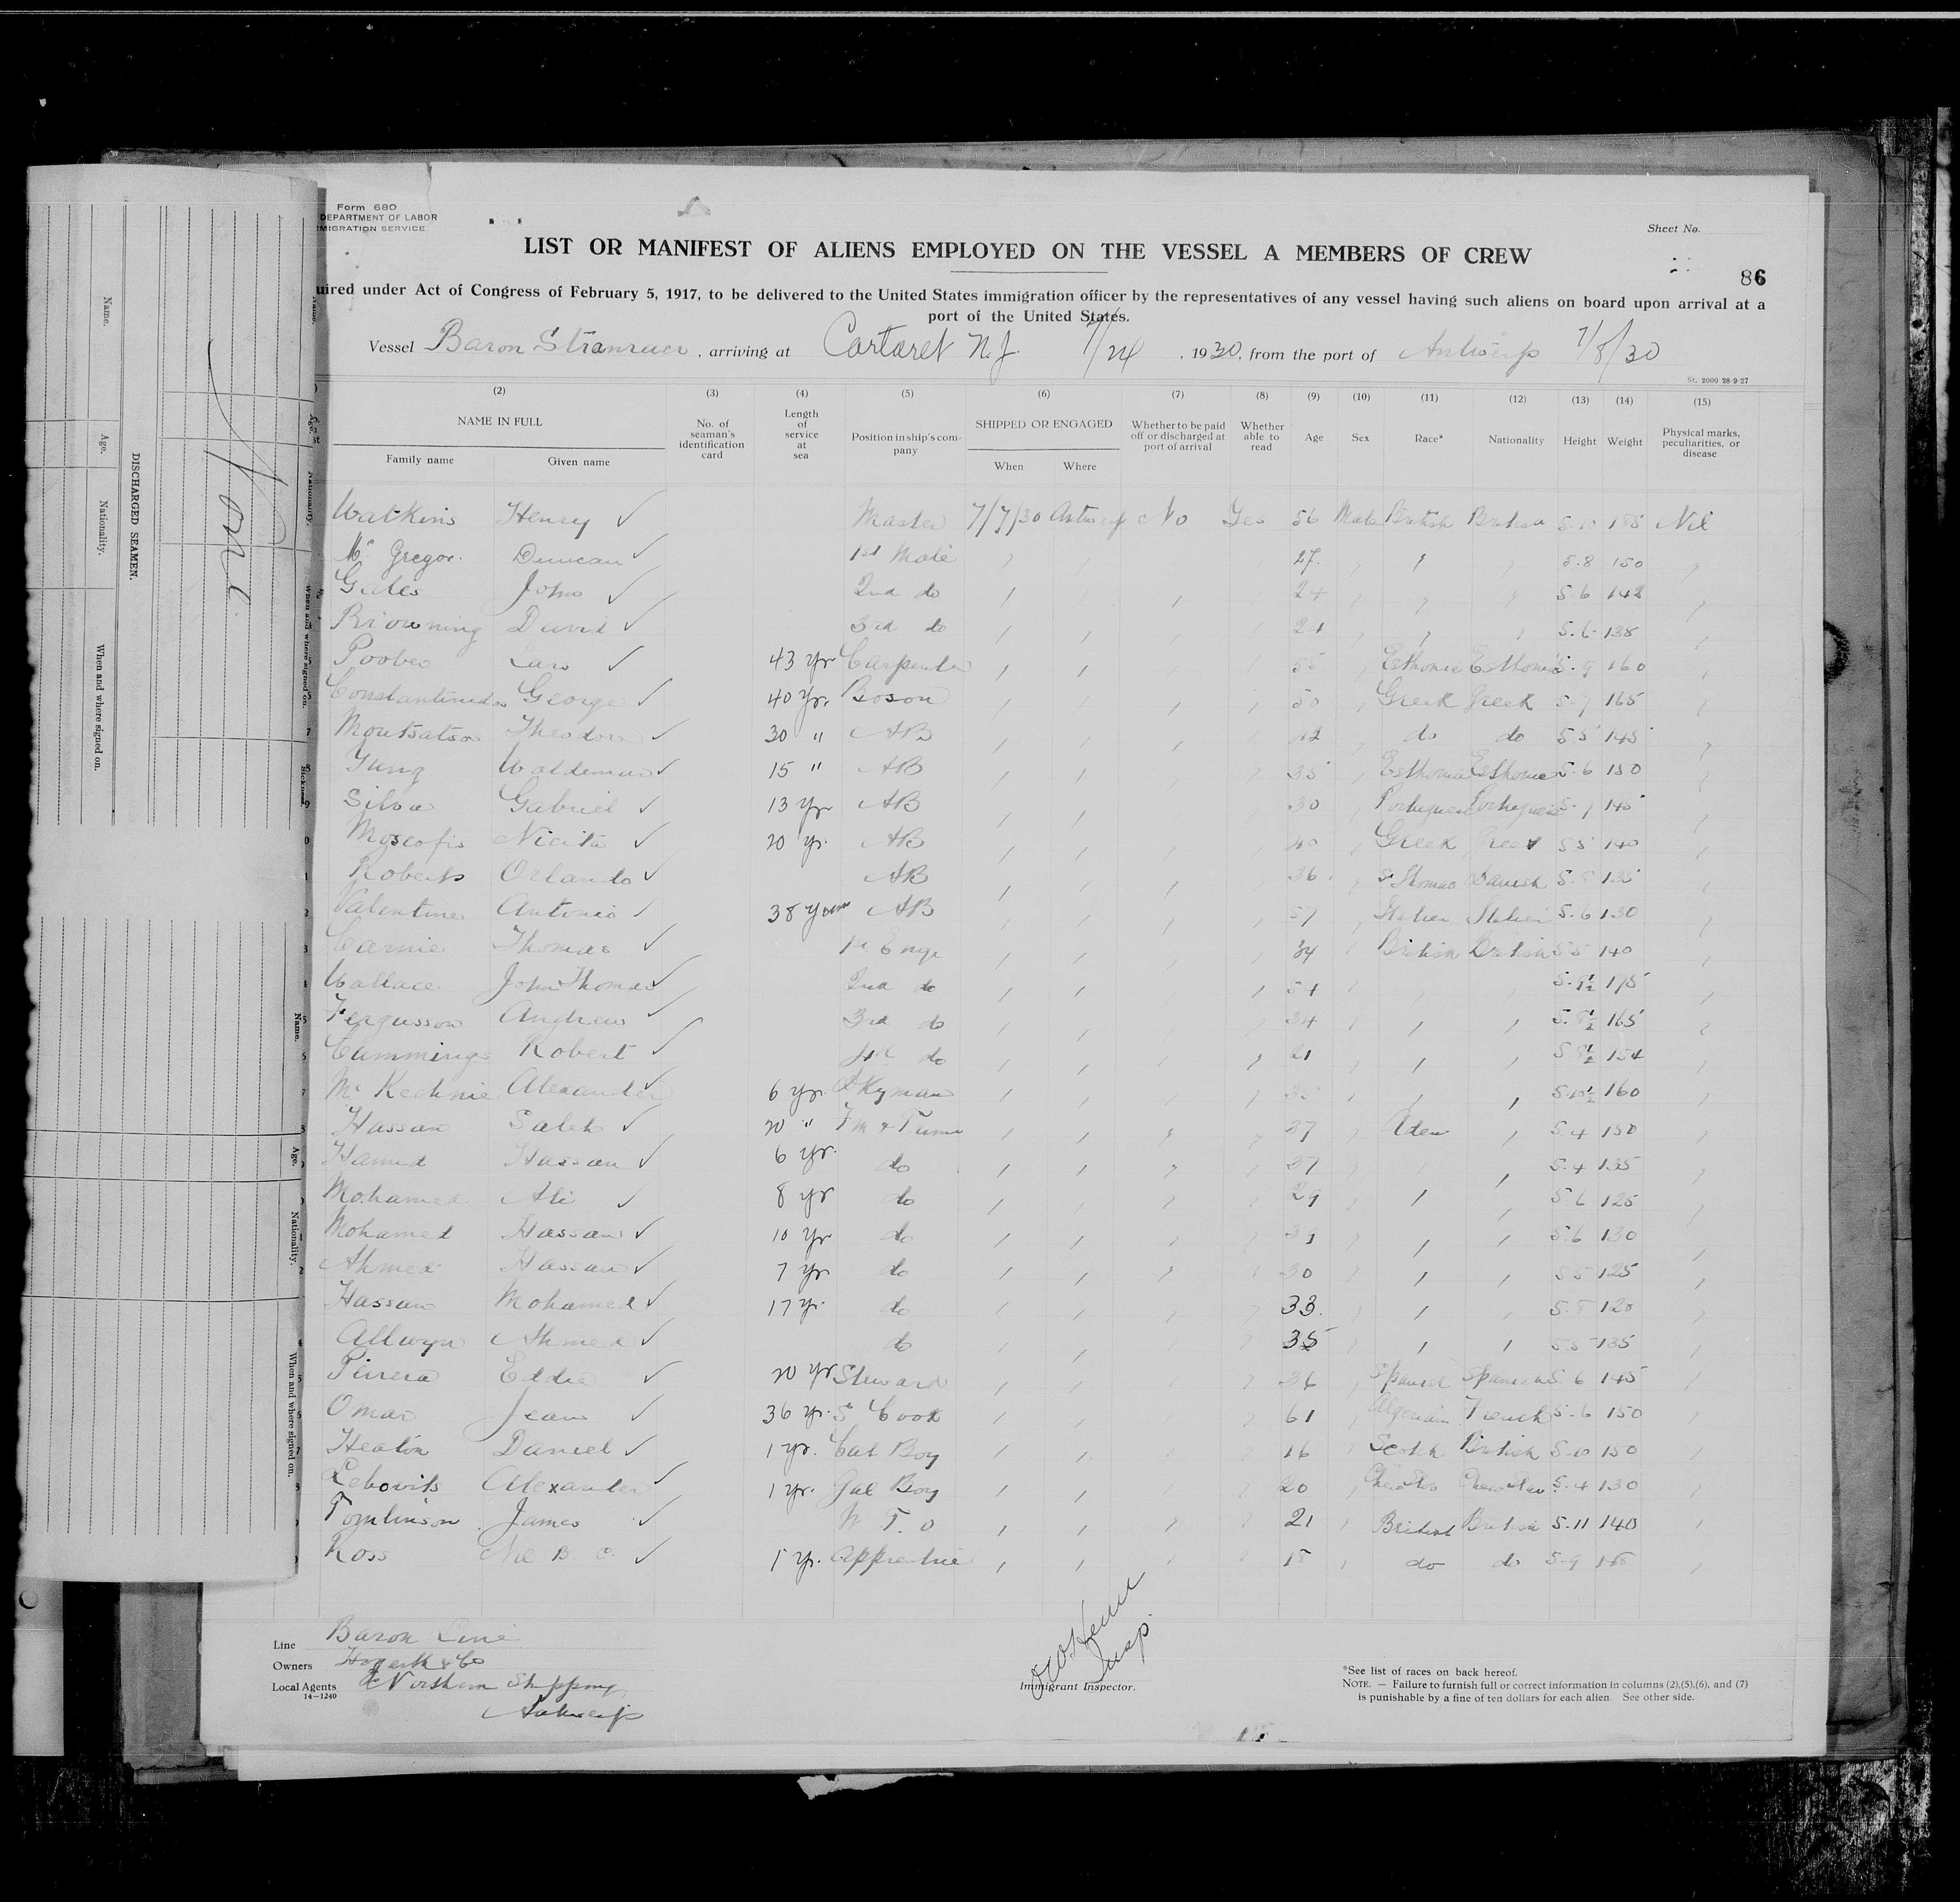 Form 680
DEPARTMENT OF LABOR
MIGRATION SERVICE
Sheet No.
LIST OR MANIFEST OF ALIENS EMPLOYED ON THE VESSEL A MEMBERS OF CREW
86
uired under Act of Congress of February 5, 1917, to be delivered to the United States immigration officer by the representatives of any vessel having such aliens on board upon arrival at a
port of the United States.
Vessel Baron Stranraer, arriving at Cartaret N.J. 7/24, 1930, from the port of Antwerp 7/8/30
St. 2000 28-9-27
(2) (3) (4) (5) (6) (7) (8) (9) (10) (11) (12) (13) (14) (15)
NAME IN FULL No. of seaman's identification card Length of service at sea Position in ship's company SHIPPED OR ENGAGED Whether to be paid off or discharged at port of arrival Whether able to read Age Sex Race* Nationality Height Weight Physical marks, peculiarities, or disease
Family name Given name When Where
Watkins Henry ✓ Master 7/7/30 Antwerp No Yes 56 Male British British 5.10 185 Nil
Mc Gregor Duncan ✓ 1st Mate 27 5.8 150
Gates John ✓ 2nd do 24 5.6 142
Browning David ✓ 3rd do 21 5.6 138
Poobes ✓ 43 yr Carpenter 55 Esthonia Esthonia 5.9 160
Constantinidos George ✓ 40 yr. Boson 50 Greek Greek 5.7 165
Moutsatsos Theodore ✓ 30 " AB 42 do do 5.5 145
Yung Waldemar ✓ 15 " AB 35 Esthonia Esthonia 5.6 150
Silva Gabriel ✓ 13 yr AB 30 Portuguese Portuguese 5.7 145
Moscofis Nicita ✓ 20 yr. AB 40 Greek Greek 5.5 140
Roberts Orlando ✓ AB 36 St Thomas Danish 5.8 135
Valentine Antonio ✓ 38 years AB 57 Italien Italien 5.6 130
Carnie Thomas ✓ 1st Enge 34 British British 5.5 140
Wallace John Thomas ✓ 2nd do 54 5.9½ 175
Fergusson Andrew ✓ 3rd do 34 5.8½ 165
Cummings Robert ✓ do 21 5.8½ 154
Mc Kechnie Alexander ✓ 6 yr. Dkyman 35 5.10½ 160
Hassan Saleh ✓ 20 " Fm & Trimr 37 Aden 5.4 150
Hamed Hassan ✓ 6 yr. do 37 5.4 135
Mohamed Ali ✓ 8 yr do 29 5.6 125
Mohamed Hassan ✓ 10 yr do 39 5.6 130
Ahmed Hassan ✓ 7 yr do 30 5.5 125
Hassan Mohamed ✓ 17 yr. do 33 5.8 120
Allwyn Ahmed ✓ do 35 5.5 135
Pinera Eddie ✓ 20 yr Steward 36 Spanish Spanish 5.6 145
Omar Jean ✓ 36 yr. Ss Cook 61 Algerian French 5.6 150
Heaton Daniel ✓ 1 yr. Cab Boy 16 Scotch British 5.10 150
Lebovits Alexander ✓ 1 yr. Gal Boy 20 5.4 130
Tomlinson James ✓ W T. O 21 British British 5.11 140
Ross B. C. ✓ 1 yr. Apprentice 18 do do 5.9
Line Baron Line
Owners Hogarth & Co
Local Agents Northern Shipping
14-1240
Antwerp
Insp.
Immigrant Inspector.
*See list of races on back hereof.
NOTE. — Failure to furnish full or correct information in columns (2),(5),(6), and (7)
is punishable by a fine of ten dollars for each alien. See other side.
DISCHARGED SEAMEN.
Name. Age. Nationality. When and where signed on.
None
Name. Age. Nationality. When and where signed on.